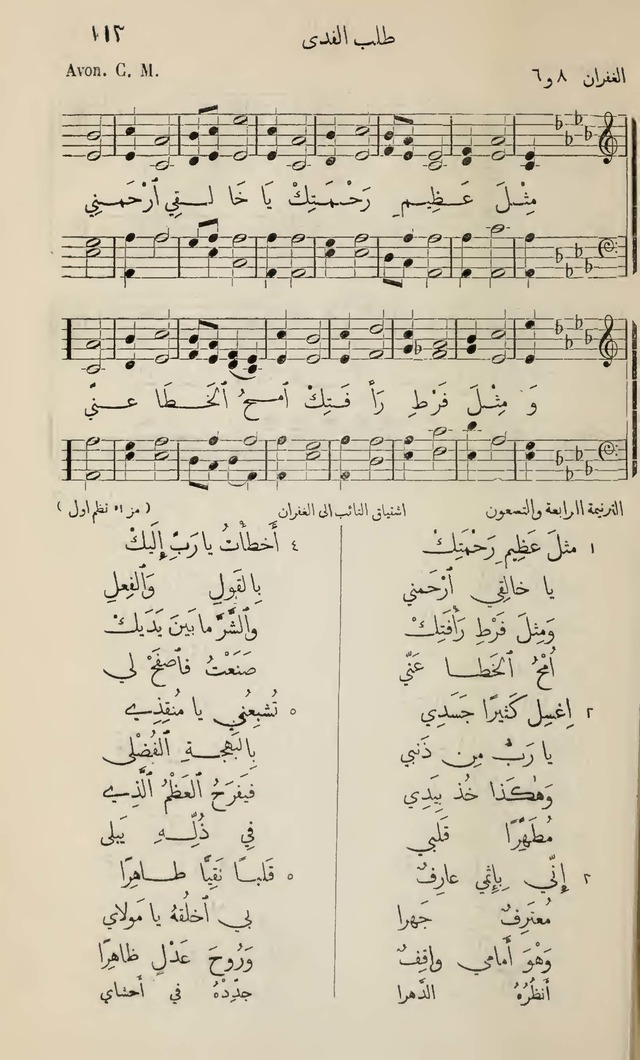 طلب الفدى ١١٣
الغفران ٨ و ٦ Avon. C. M.
مِثْلَ عَظِيمِ رَحْمَتِكْ يَا خَا لِقِي ٱرْحَمْنِي
وَ مِثْلَ فَرْطِ رَأْ فَتِكْ ٱمحُ ٱلْخَطَا عنّي
الترنيمة الرابعة والتسعون اشتياق التائب الى الغفران ( مز ٥١ نظم اول )
١ مثلَ عَظِيمِ رَحْمَتِكْ
يا خالِقِي ٱرْحَمْني
وَمِثلَ فَرْطِ رَأْفَتِكْ
اُمْحُ ٱلخَطا عَنّي
٢ اِغسِل كَثيرًا جَسَدِي
يا رَبُّ مِن ذَنبي
وَهٰكَذا خُذ بِيَدِي
مُطَهِّرًا قَلبي
٣ إِنّي بِإِثمي عارِفٌ
مُعتَرِفٌ جَهرا
وَهْوَ أَمامي واقِفٌ
أَنظُرُهُ الدَّهرا
٤ أَخطَأْتُ يا رَبِّ إِلَيكْ
بِالقَولِ وَٱلفِعلِ
وَٱلشَّرَّ ما بَينَ يَدَيكْ
صَنَعْتُ فٱصفَحْ لي
٥ تُشبِعُني يا مُنقِذِي
بِالبَهجةِ ٱلفُضْلى
فَيَفرَحُ ٱلعَظْمُ ٱلَّذِي
في ذُلِّهِ يَبلى
٥ قَلبًا نَقِيًّا طاهِرًا
بي ٱخلُقهُ يا مَولاي
وَرُوحَ عَدْلٍ ظاهِرًا
جدِّدْهُ في أَحشاي